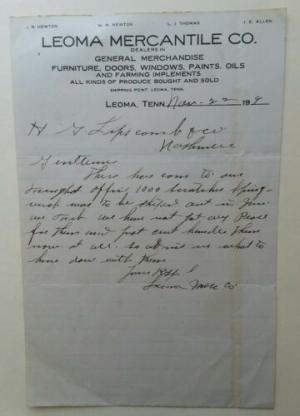 J. B. NEWTON W. H. NEWTON L. J. THOMAS J. E. ALLEN
LEOMA MERCANTILE CO.
DEALERS IN
GENERAL MERCHANDISE
FURNITURE, DOORS, WINDOWS, PAINTS, OILS
AND FARMING IMPLEMENTS
ALL KINDS OF PRODUCE BOUGHT AND SOLD
SHIPPING POINT, LEOMA, TENN.
LEOMA, TENN. Nov - 22 191
H G Lipscomb & Co
Nashville
Gentlemen
There has com to our
1000
was to be ship ed out in June
we have not got any Place
for them and just cant handle them
now at all. so advise us what to
have don with them
Yours
Leoma Merc Co